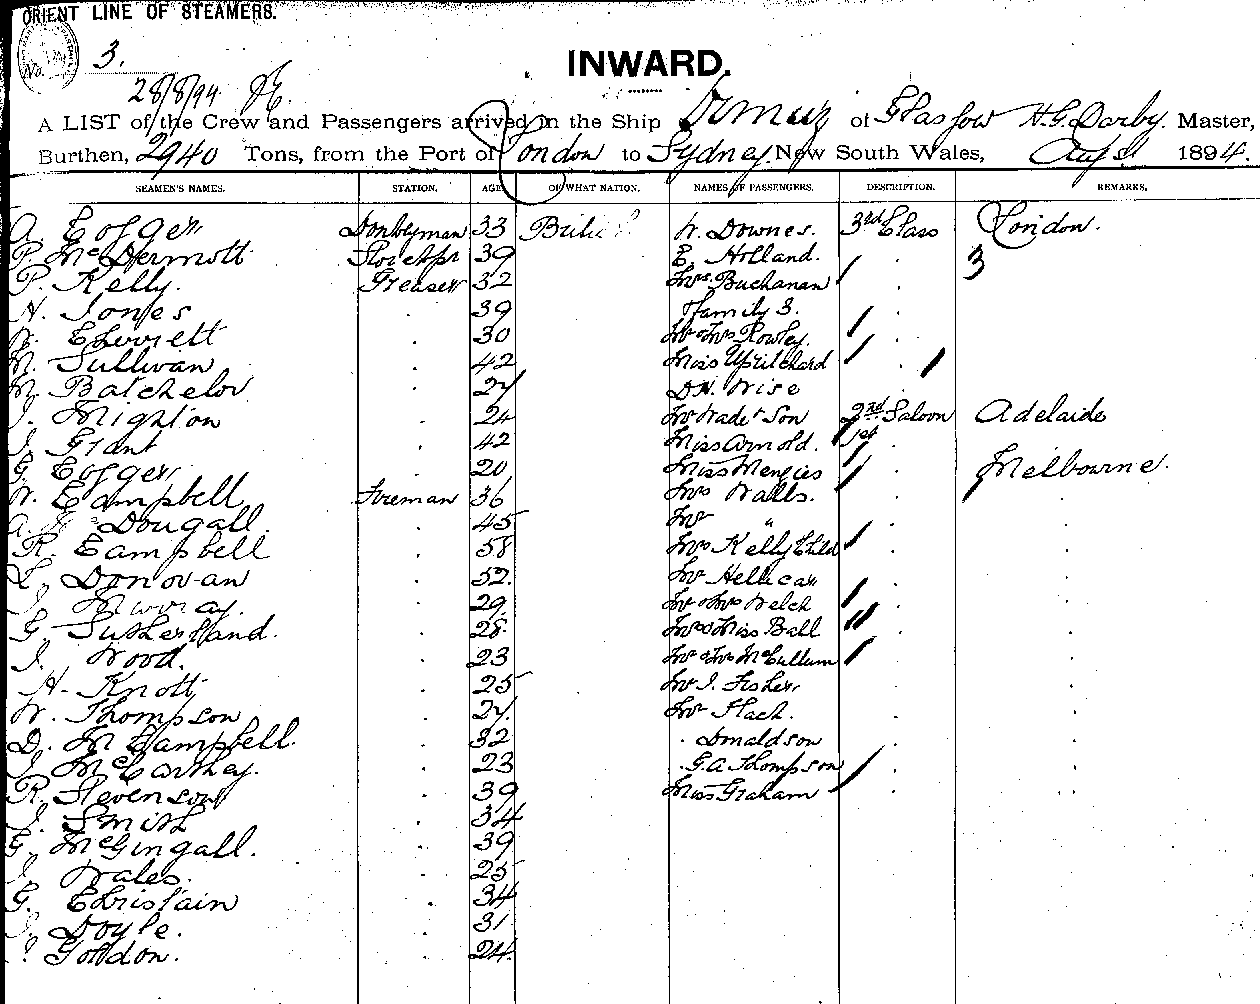 ORIENT LINE OF STEAMERS.
3.
INWARD.
28/8/94
A LIST of the Crew and Passengers arrived in the Ship Ormuz of Glasgow H. G. Darby. Master,
Burthen, 2940 Tons, from the Port of London to Sydney New South Wales, 1894.
SEAMEN'S NAMES. STATION. AGE OF WHAT NATION. NAMES OF PASSENGERS. DESCRIPTION. REMARKS.
A. Donkeyman 33 W. Downes. 3rd Class London.
P. McDermott 39 E. Holland. 3
P. Kelly. Greaser 32 Mrs. Buchanan
H. Jones 39 family 3.
30 Mr & Mrs Rowley.
Sullivan 42 Miss
Batchelor 27 Wise
J. Mighton 24 Mr Wade & Son 2nd Saloon Adelaide
J. Grant 42 Miss Arnold. 1st
G. 20 Miss Menzies Melbourne.
W. Campbell Foreman 36 Mrs Walls.
A. Dougall. 45 Mr "
R. Campbell 58 Mrs Kelly Child
Donovan 52. Mr Hellicar
J. Murray. 29 Mr & Mrs Welch
G. Sutherland. 28 Mrs & Miss Ball
J. Wood. 23 Mr & Mrs McCullum
H. Knott 25 Mr J. Fisher
W. Thompson 27. Mr Flack.
D. McCampbell. 32 Donaldson
J. McCarthey. 23 G. A. Thompson
R. Stevenson 39 Miss Graham
J. Smith 34
G. McGingall. 39
J. Wales. 25
G. Christain 34
J. Doyle. 31
Gordon. 24.